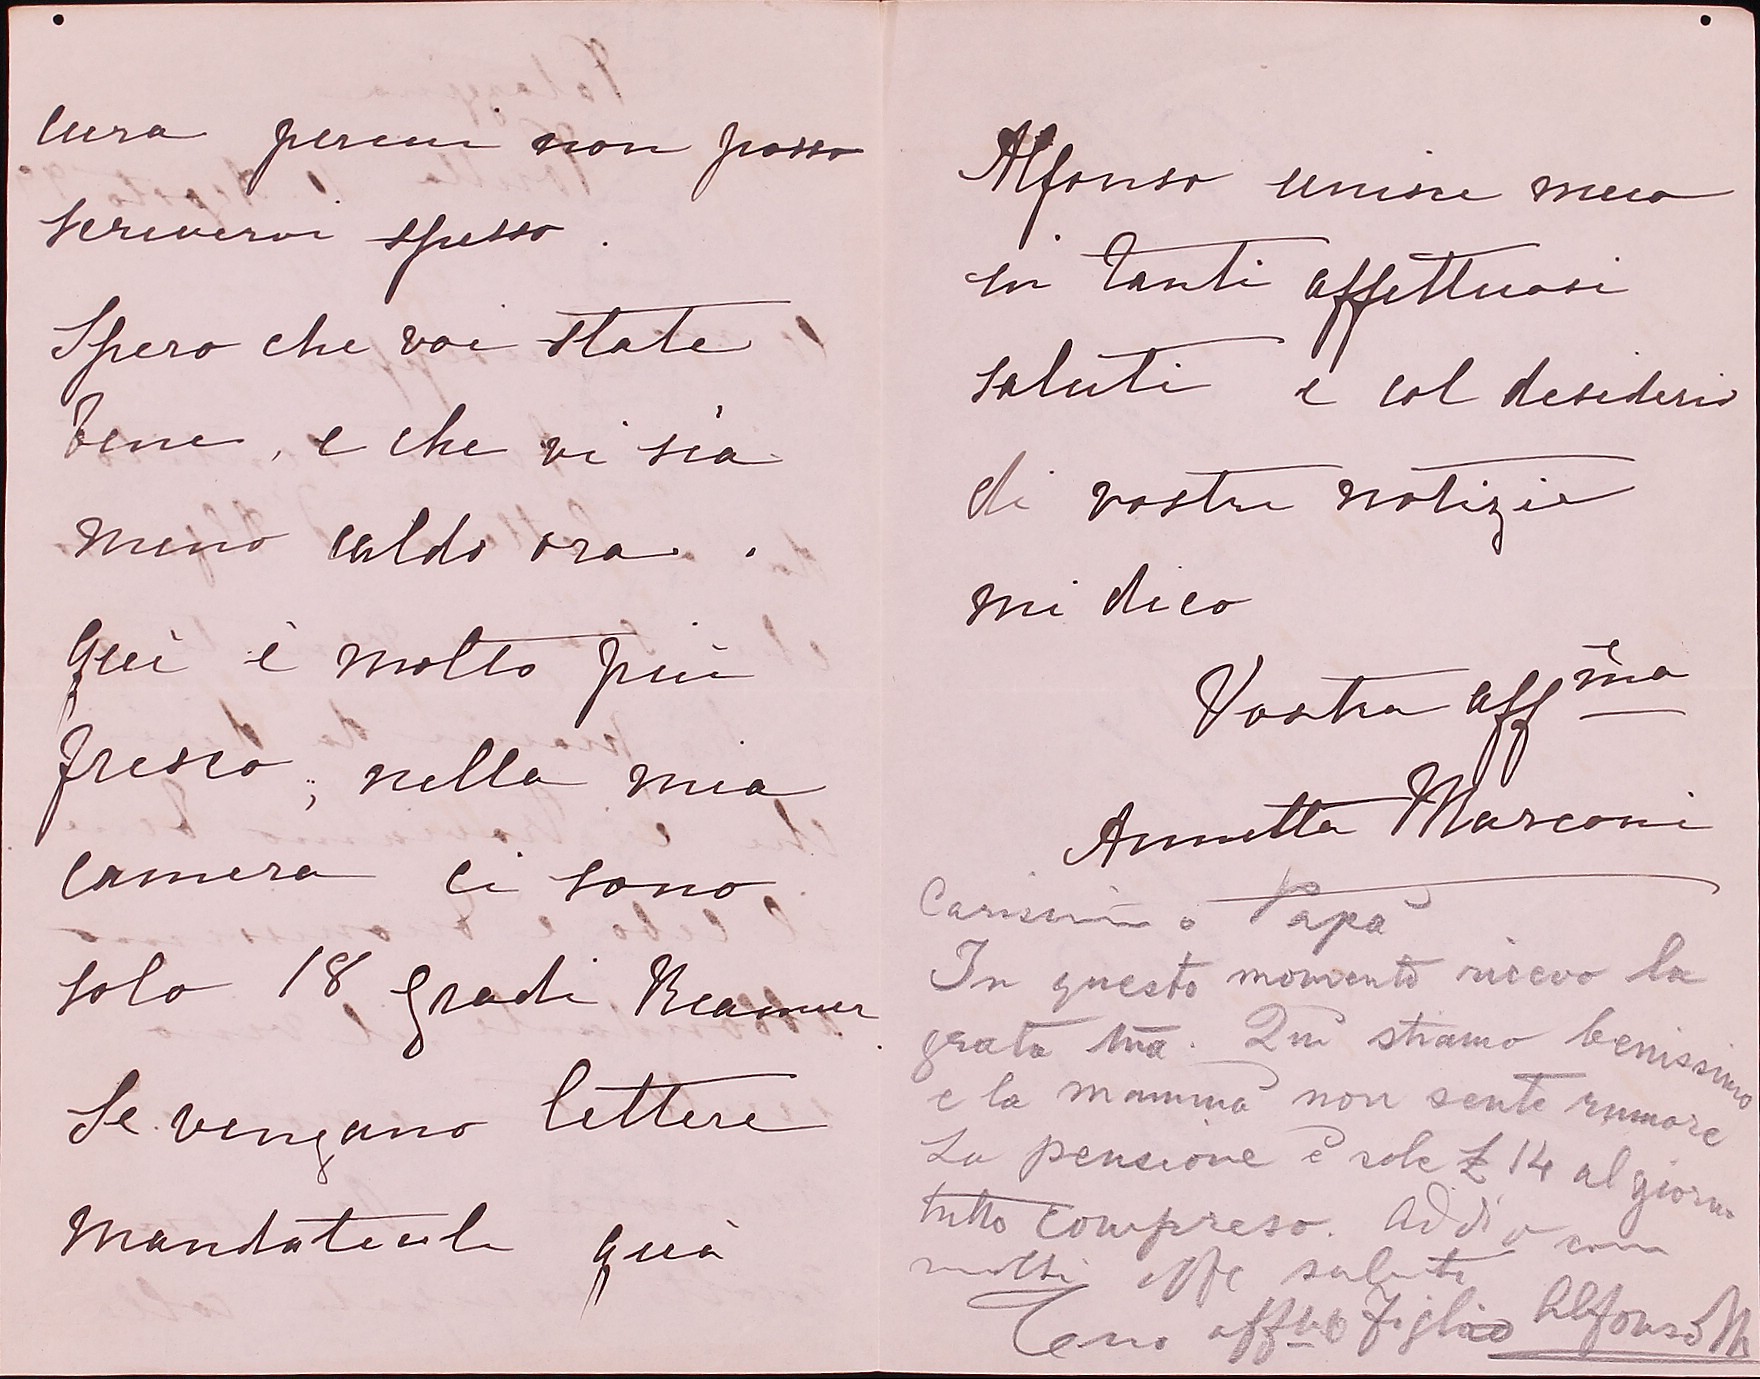 cura percui non posso
scrivervi spesso.
Spero che voi state
bene, e che vi sia
meno caldo ora.
Qui è molto più
fresco, nella mia
camera ci sono
solo 18 gradi Reamur.
Se vengano lettere
mandatecele quà
Alfonso unisce meco
in tanti affettuosi
saluti e col desiderio
di vostre notizie
mi dico
Vostra affma
Annetta Marconi
Carissimo Papà
In questo momento ricevo la
grata tua. Qui stiamo benissimo
e la mamma non sente rumore
La pensione è sole £ 14 al giorno
tutto compreso. Addio con
molti affe saluti
Tuo affmo Figlio Alfonso M